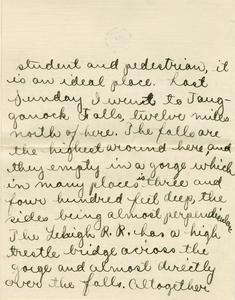 student and pedestrian, it
is an ideal place. Last
Sunday I went to Taug-
ganock Falls, twelve miles
north of here. The falls are
the highest around here, and
they empty in a gorge which
in many places is three and
four hundred feet deep, the
sides being almost perpendicular.
The Lehigh R.R. has a high
trestle bridge across the
gorge and almost directly
over the falls. Altogether